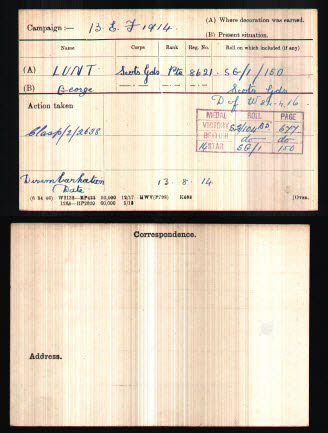 Campaign :— 13 E. F 1914.
(A) Where decoration was earned.
(B) Present situation.
Name Corps Rank Reg. No. Roll on which included (if any)
(A) LUNT. Scots Gds Pte 8621. SG/1/150
(B) George Scots Gds
Action taken D of W 29.4.16
MEDAL ROLL PAGE
VICTORY SG/104 B2 677
BRITISH do do
14 STAR SG/1 150
Clasp/2/2638
Disembarkation 13. 8. 14
Date
(6 34 46) W5133—RP435 50,000 12/17 HWV(P799) K608
120,000 5/19
[Over.
Correspondence.
Address.